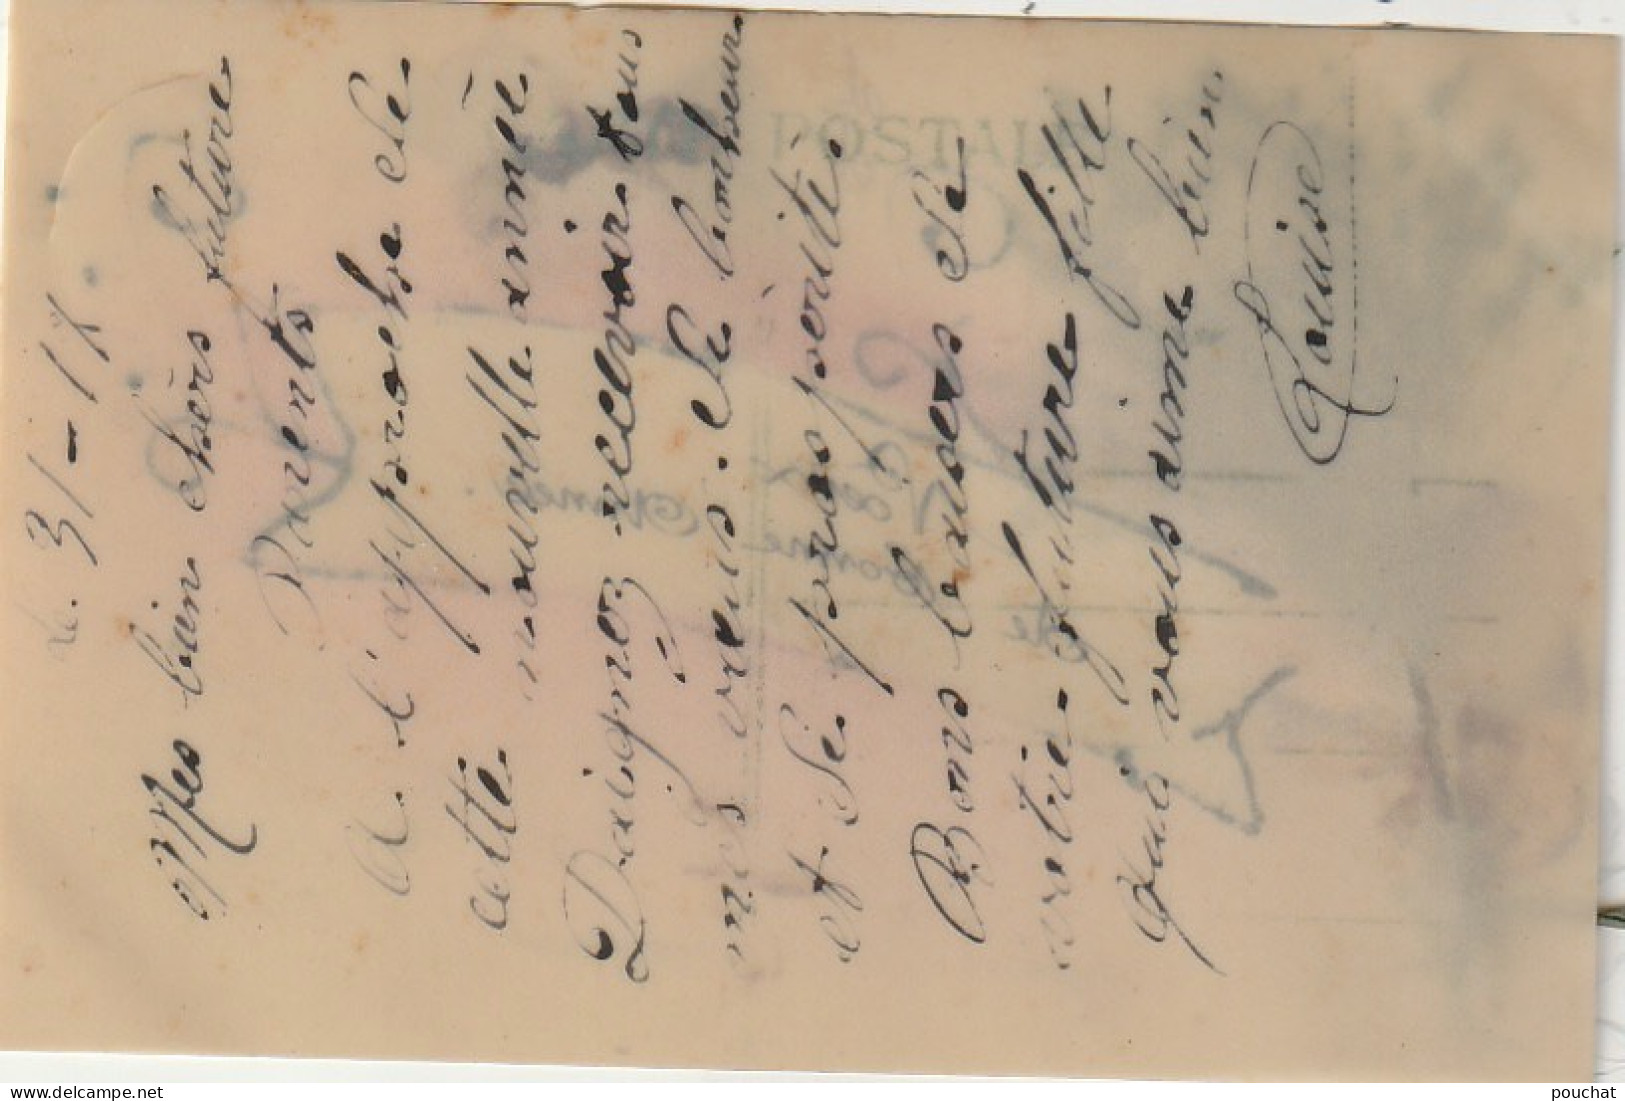 le. 31-12
Mes bien chèrs future
Parents
A. l'approche de
cette nouvelle année
Daignez recevoir. tous
mes vœus. de bonheur
et de prospérité.
Bons baisers de
votre future fille
Qui vous aime bien
Louise
POSTALE
delcampe.net
pouchat